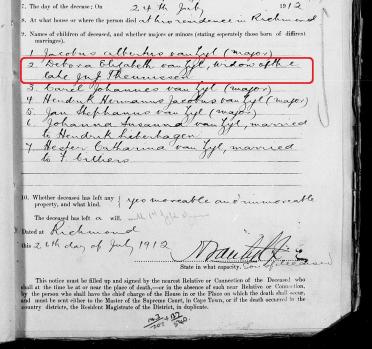 7. The day of the decease: On 24th July 1912
8. At what house or where the person died at his residence in Richmond
9. Names of children of deceased, and whether majors or minors (stating seperately those born of different
marriages).
1 Jacobus Albertus van Zyl (major)
2 Debora Elizabeth van Zyl, widow of the
late Theunissen
3 Carel Johannes van Zyl (major)
4 Hendrik Hermanus Jacobus van Zyl (major)
5 Jan Stephanus van Zyl (major)
6 Johanna Susanna van Zyl, married
to Hendrik Liebenhagen
7 Hester Catharina van Zyl, married
to Cilliers
10. Whether deceased has left any
property, and what kind.
} yes moveable and immoveable
The deceased has left a will.
Dated at Richmond
this 26th day of July 1912
State in what capacity.
This notice must be filled up and signed by the nearest Relative or Connection of the Deceased who
shall at the time be at or near the place of death, or in the absence of such near Relative or Connection,
by the person who shall have the chief charge of the House in or the Place on which the death shall occur,
and must be sent either to the Master of the Supreme Court, in Cape Town, or if the death occurred in the
country districts, the Resident Magistrate of the District, in duplicate.